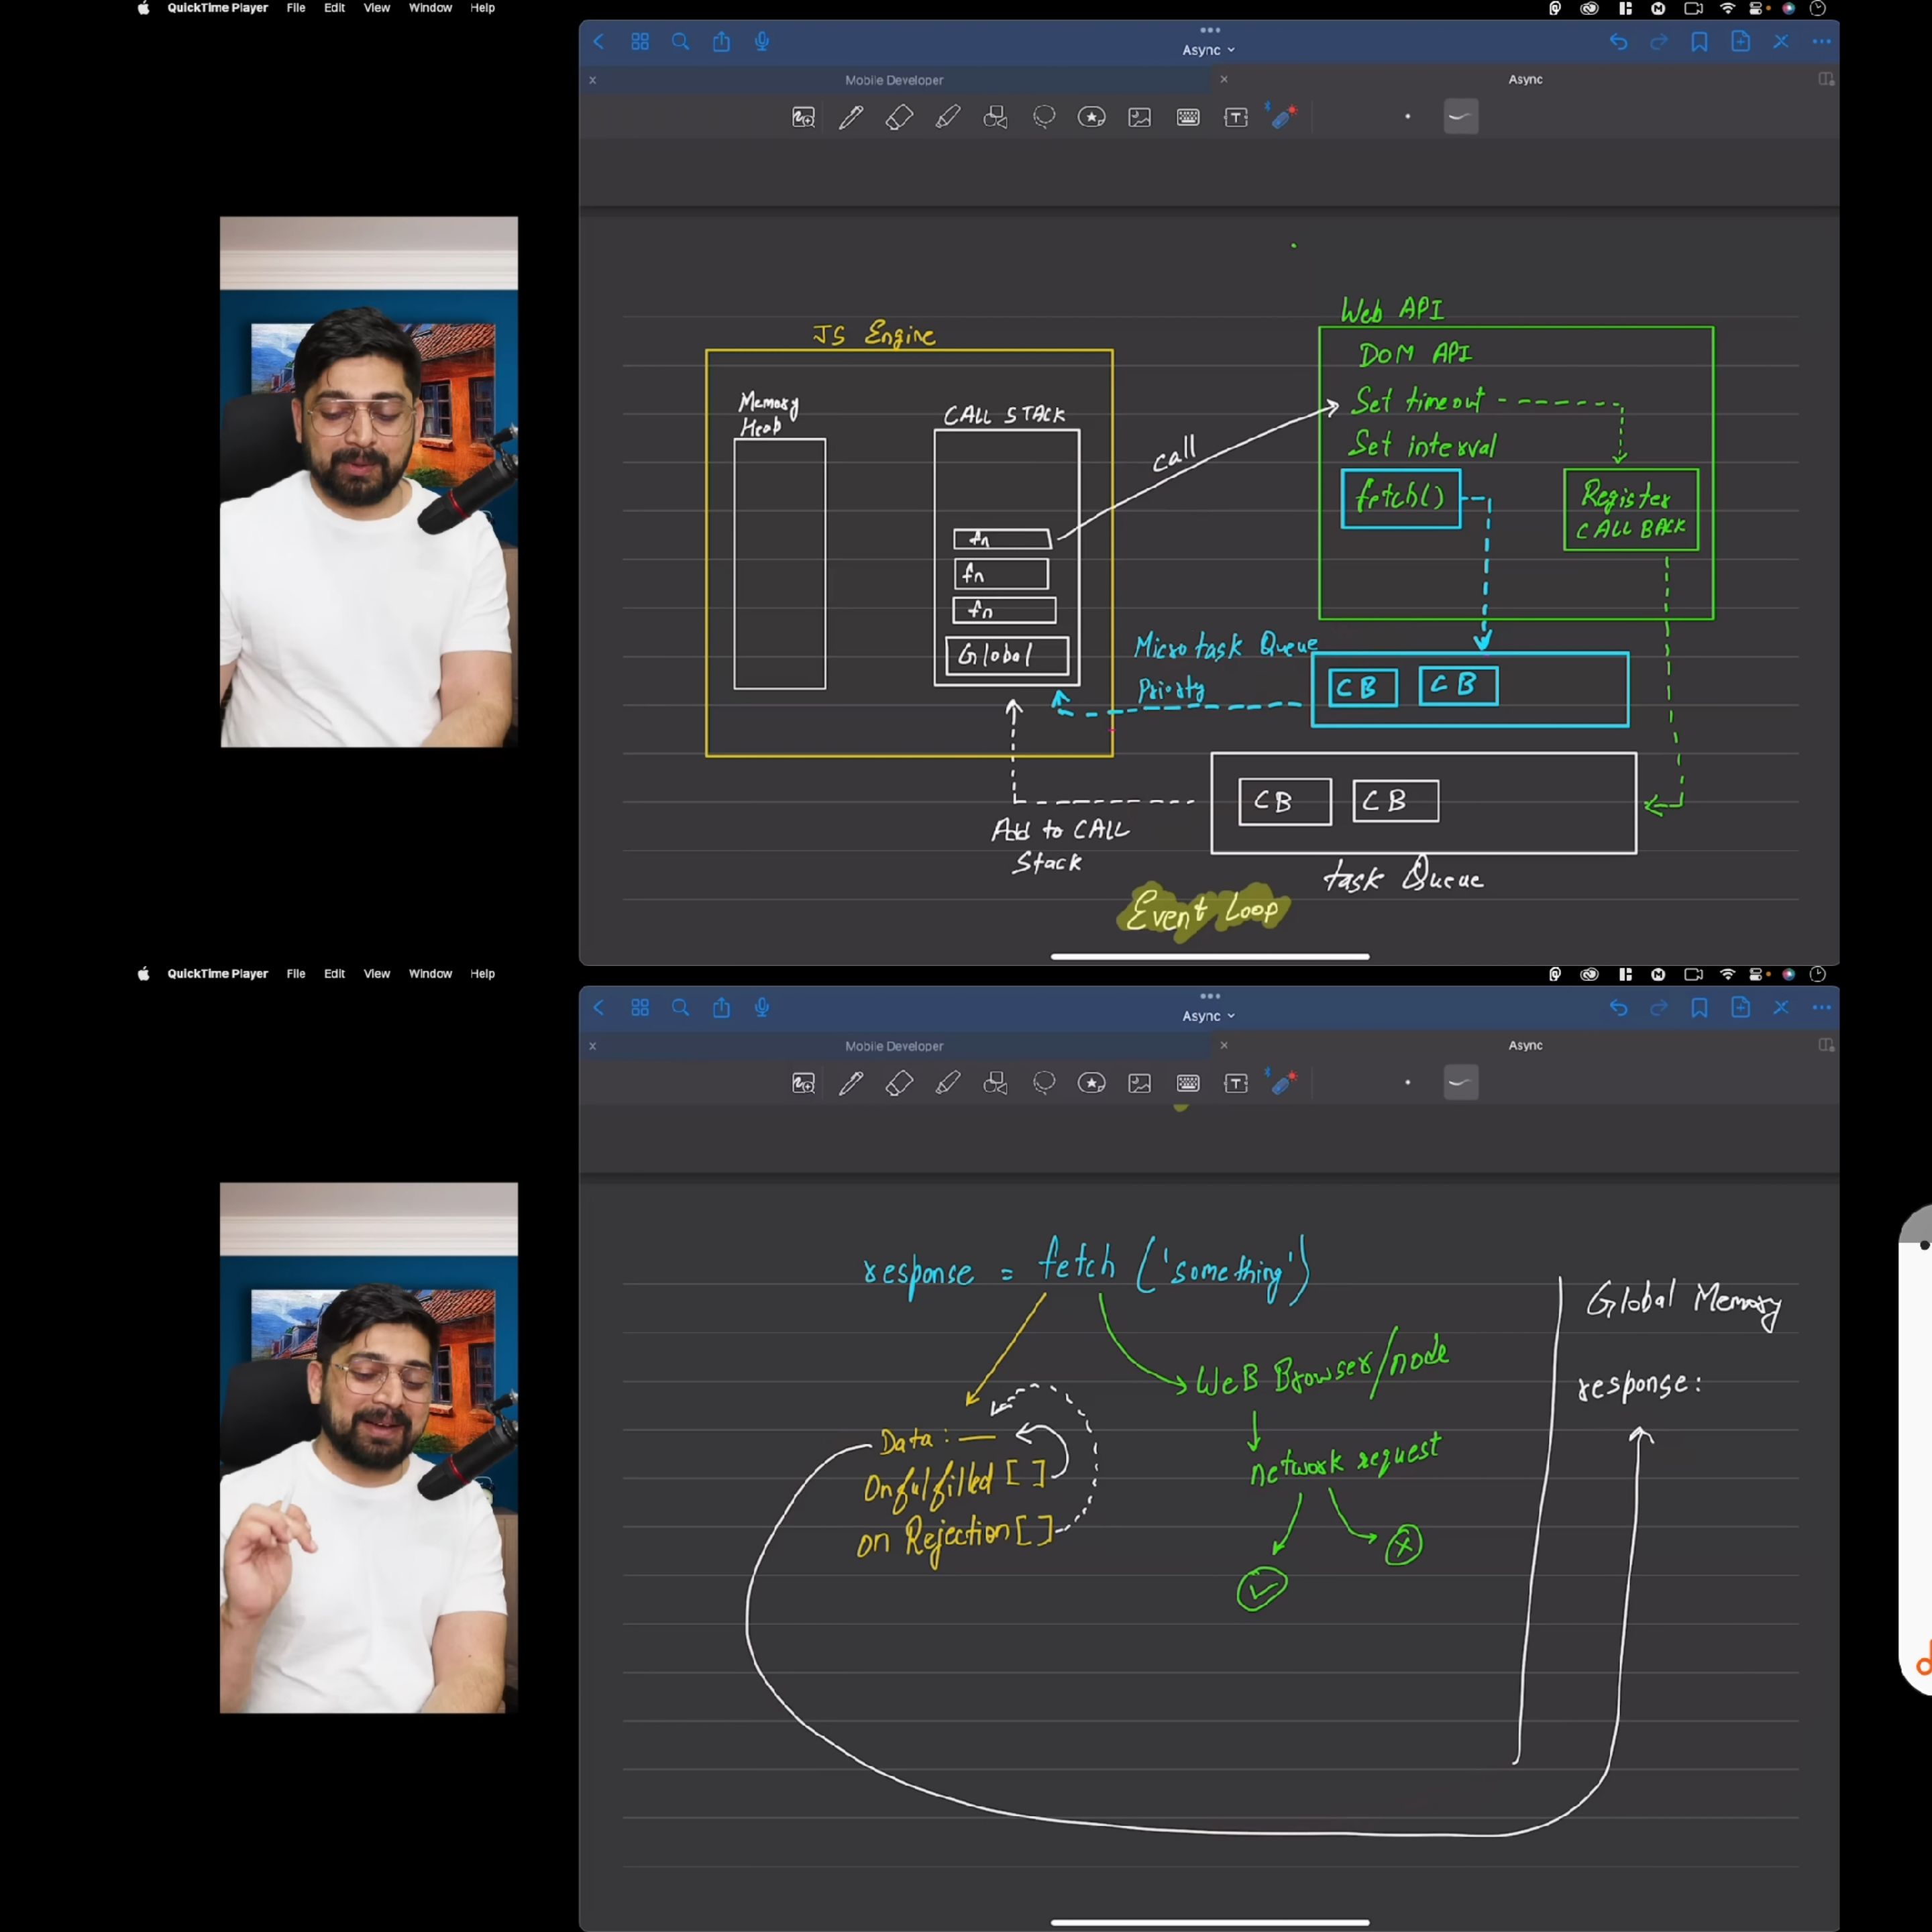 QuickTime Player File Edit View Window Help
Async
Mobile Developer
Async
JS Engine
Memory
Heap
CALL STACK
fn
fn
fn
Global
call
Web API
DOM API
Set timeout
Set interval
fetch()
Register
CALL BACK
Microtask Queue
Priority
CB CB
CB CB
Add to CALL
Stack
task Queue
Event Loop
QuickTime Player File Edit View Window Help
Async
Mobile Developer
Async
response = fetch ('something')
Global Memory
response:
WeB Browser/node
network request
Data:
Onfulfilled [ ]
on Rejection [ ]